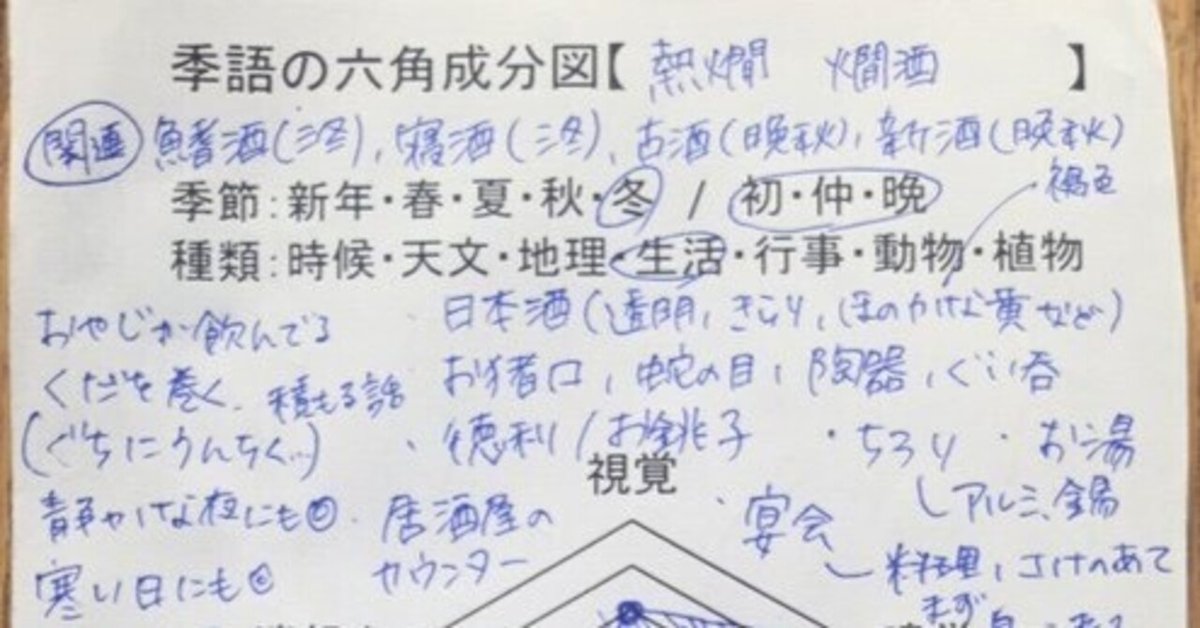 季語の六角成分図【 熱燗 燗酒 】
関連 鰭酒(三冬)、寝酒(三冬)、古酒(晩秋)、新酒(晩秋)
季節:新年・春・夏・秋・冬 / 初・仲・晩
褐色
種類:時候・天文・地理・生活・行事・動物・植物
日本酒(透明、にごり、ほのかな黄など)
おやじが飲んでる
お猪口、蛇の目、陶器、ぐい呑
くだを巻く、積もる話
・徳利/お銚子 ・ちろり ・お湯
(ぐちにうんちく…)
視覚
アルミ、錫
静かな夜にも◎
居酒屋の
カウンター
・宴会
料理、さけのあて
寒い日にも◎
まず